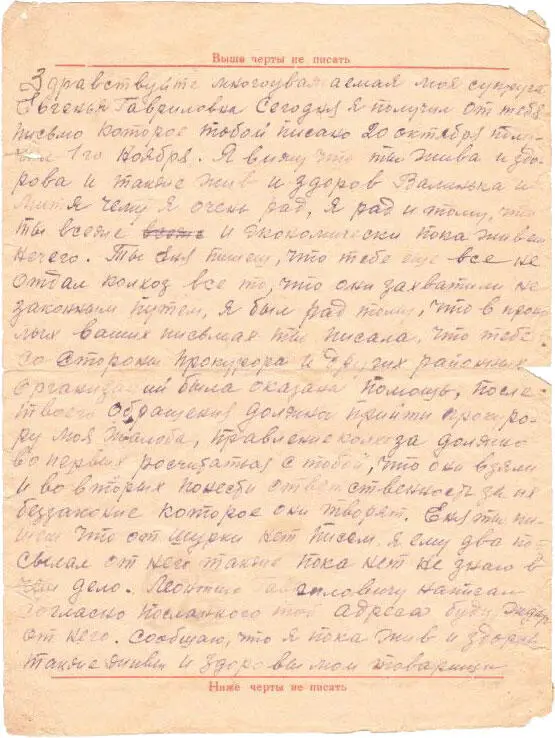 Выше черты не писать
Здравствуйте многоуважаемая моя супруга
Евгенья Гавриловна Сегодня я получил от тебя
письмо которое тобой писано 20 октября полу-
чил 1го ноября. Я вижу что ты жива и здо-
рова и также жив и здоров Валинька и
Митя чему я очень рад, я рад и тому, что
ты все же и экономически пока живеш
нечего. Ты Еня пишеш, что тебе еще все не
отдал колхоз все то, что они захватили не
законным путем, я был рад тому, что в прош
лых ваших письмах ты писала. что тебе
со стороны прокурора и других районных
организаций была оказана помощь, после
твоего обращения должна прийти прокуро-
ру моя жалоба, правление колхоза должно
во первых росчитаться с тобой, что они взяли
и во вторых понести ответственность за их
беззаконие которое они творят. Еня ты пи-
шеш что от Шурки нет писем, я ему два по
сылал от него также пока нет не знаю в
чем дело. Леонтию Гавриловичу написал
согласно посланного тоб адреса буду
от него. Сообщаю, что я пока жив и здоров
также живы и здоровы мои товарищи
Ниже черты не писать